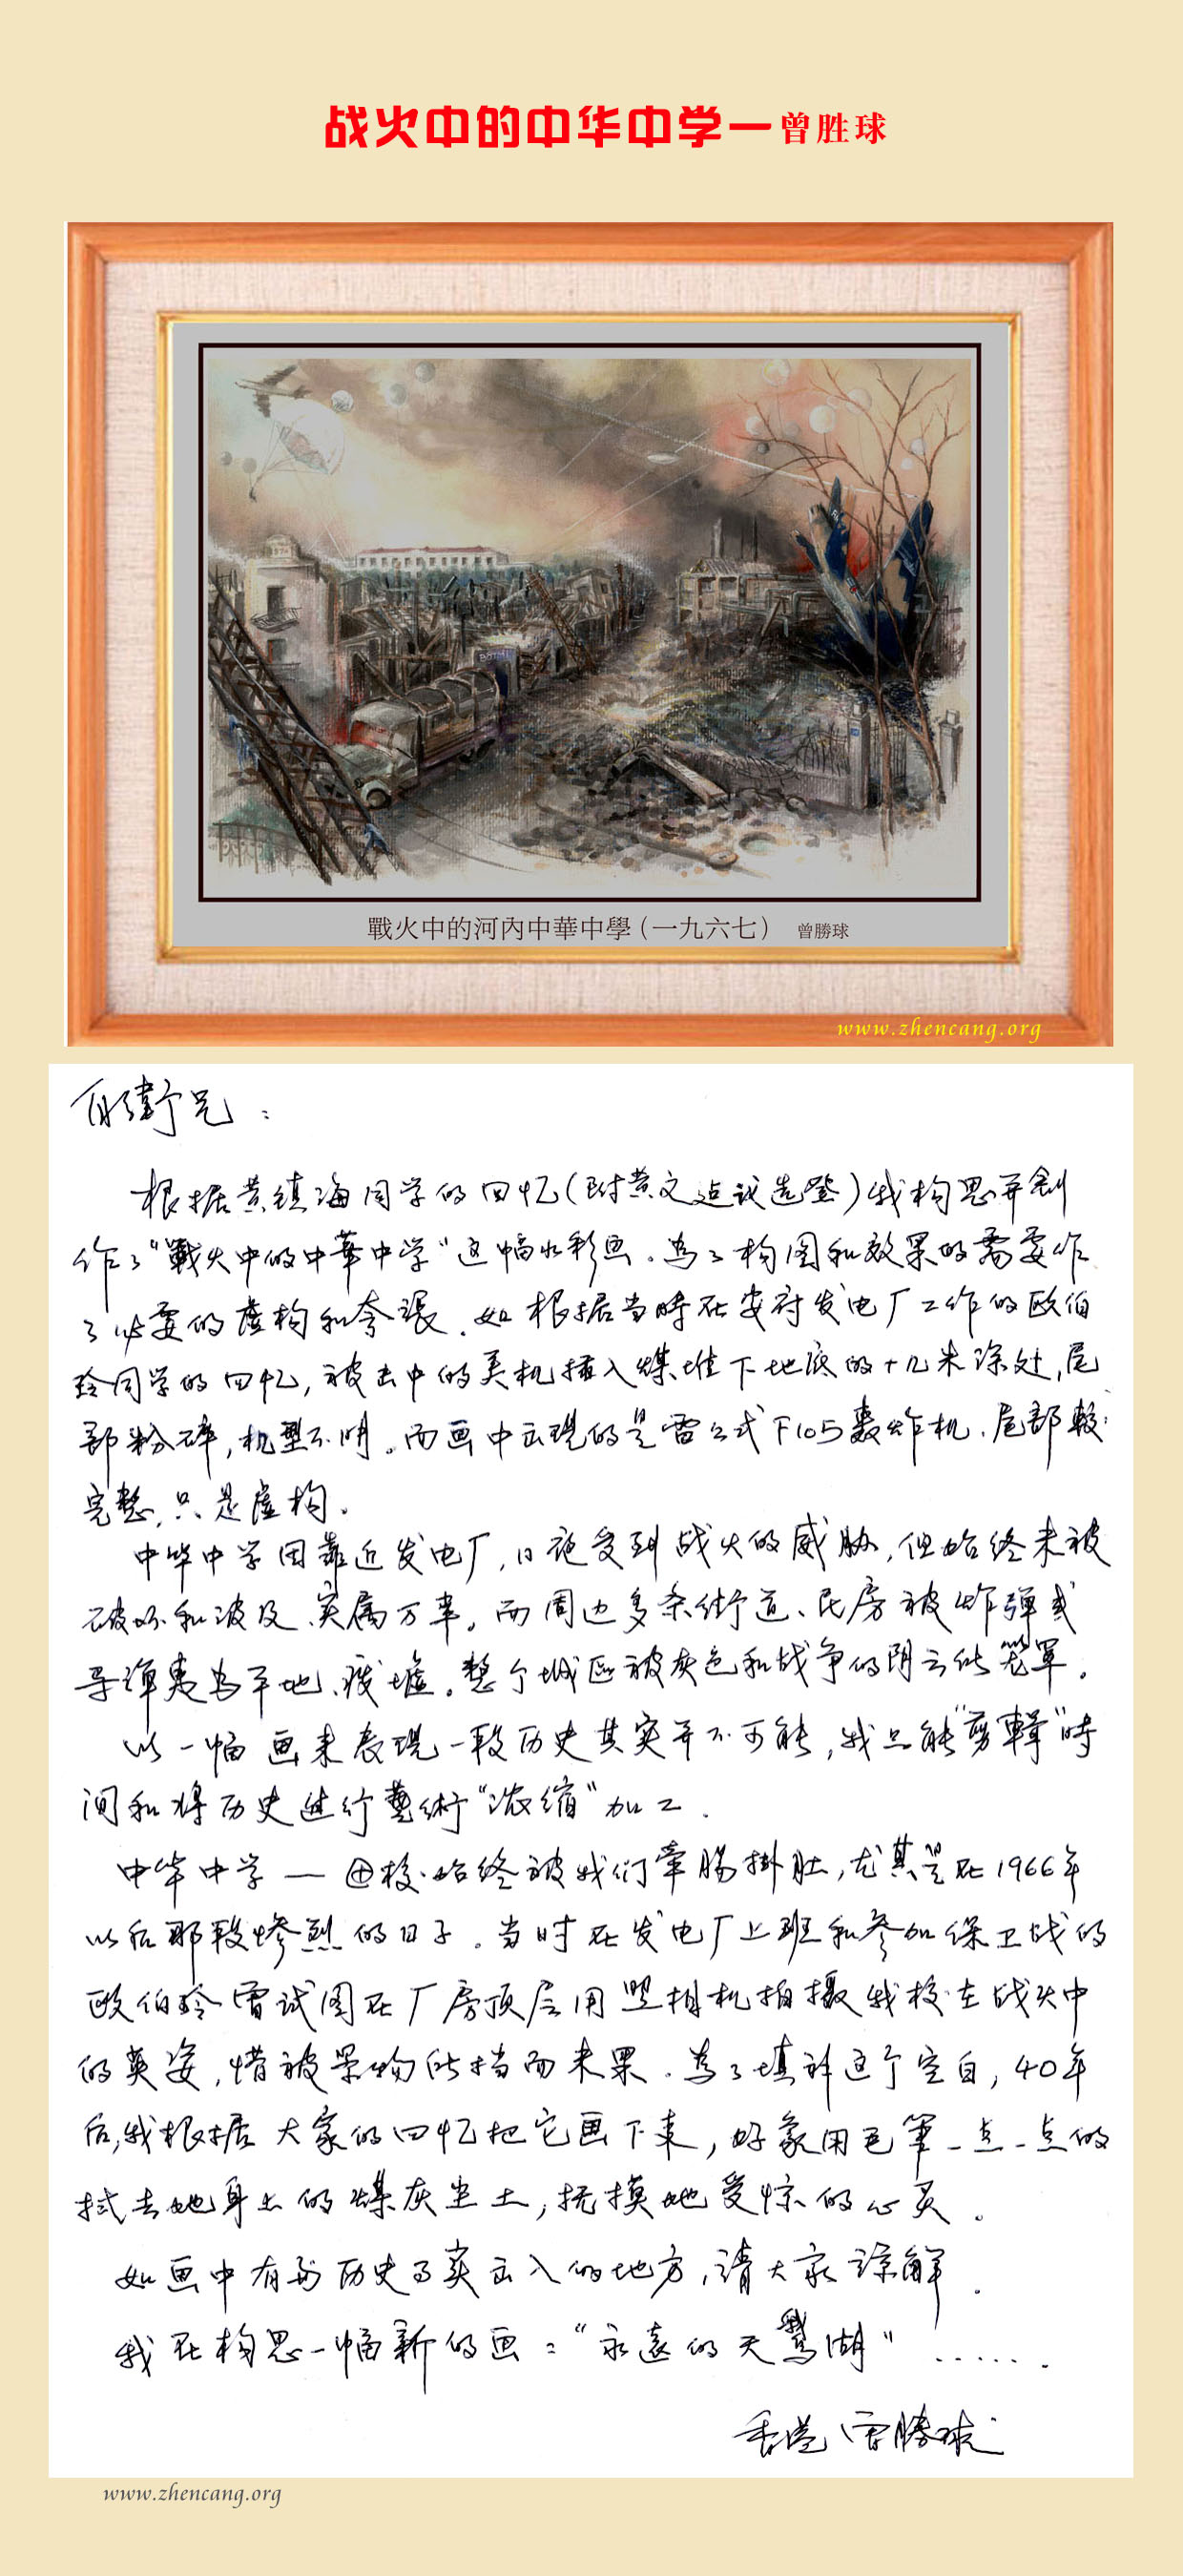 战火中的中华中学—曾胜球
戰火中的河內中華中學(一九六七) 曾勝球
www.zhencang.org
兄：
根据黄镇海同学的回忆(附黄文选登)我构思并創
作了“戰火中的中華中学”这幅水彩画。為了构图和效果的需要作
了必要的虚构和夸張。如根据当時在安府发电厂工作的欧伯
玲同学的回忆，被击中的美机插入煤堆下地底的十几米深处，尾
部粉碎，机型不明。而画中出現的是雷公式F105轰炸机，尾部較
完整，只是虚构。
中华中学因靠近发电厂，日夜受到战火的威胁，但始终未被
破坏和波及，实属万幸。而周边多条街道、民房被炸弹或
导弹夷为平地、废墟。整个城区被灰色和战争的阴云所笼罩。
以一幅画来表現一段历史其实并不可能，我只能“剪輯”時
间和将历史进行藝術“浓缩”加工。
中华中学—母校始终被我们牵腸掛肚，尤其是在1966年
以后那段惨烈的日子。当时在发电厂上班和参加保卫战的
欧伯玲曾试图在厂房顶层用照相机拍摄我校在战火中
的英姿，惜被景物所挡而未果。為了填补这个空白，40年
后，我根据大家的回忆把它画下来，好象用毛筆一点一点的
拭去她身上的煤灰尘土，抚摸她受惊的心灵。
如画中有与历史事实出入的地方，请大家谅解。
我在构思一幅新的画：“永远的天鹅湖”……
香港 曾勝球
www.zhencang.org